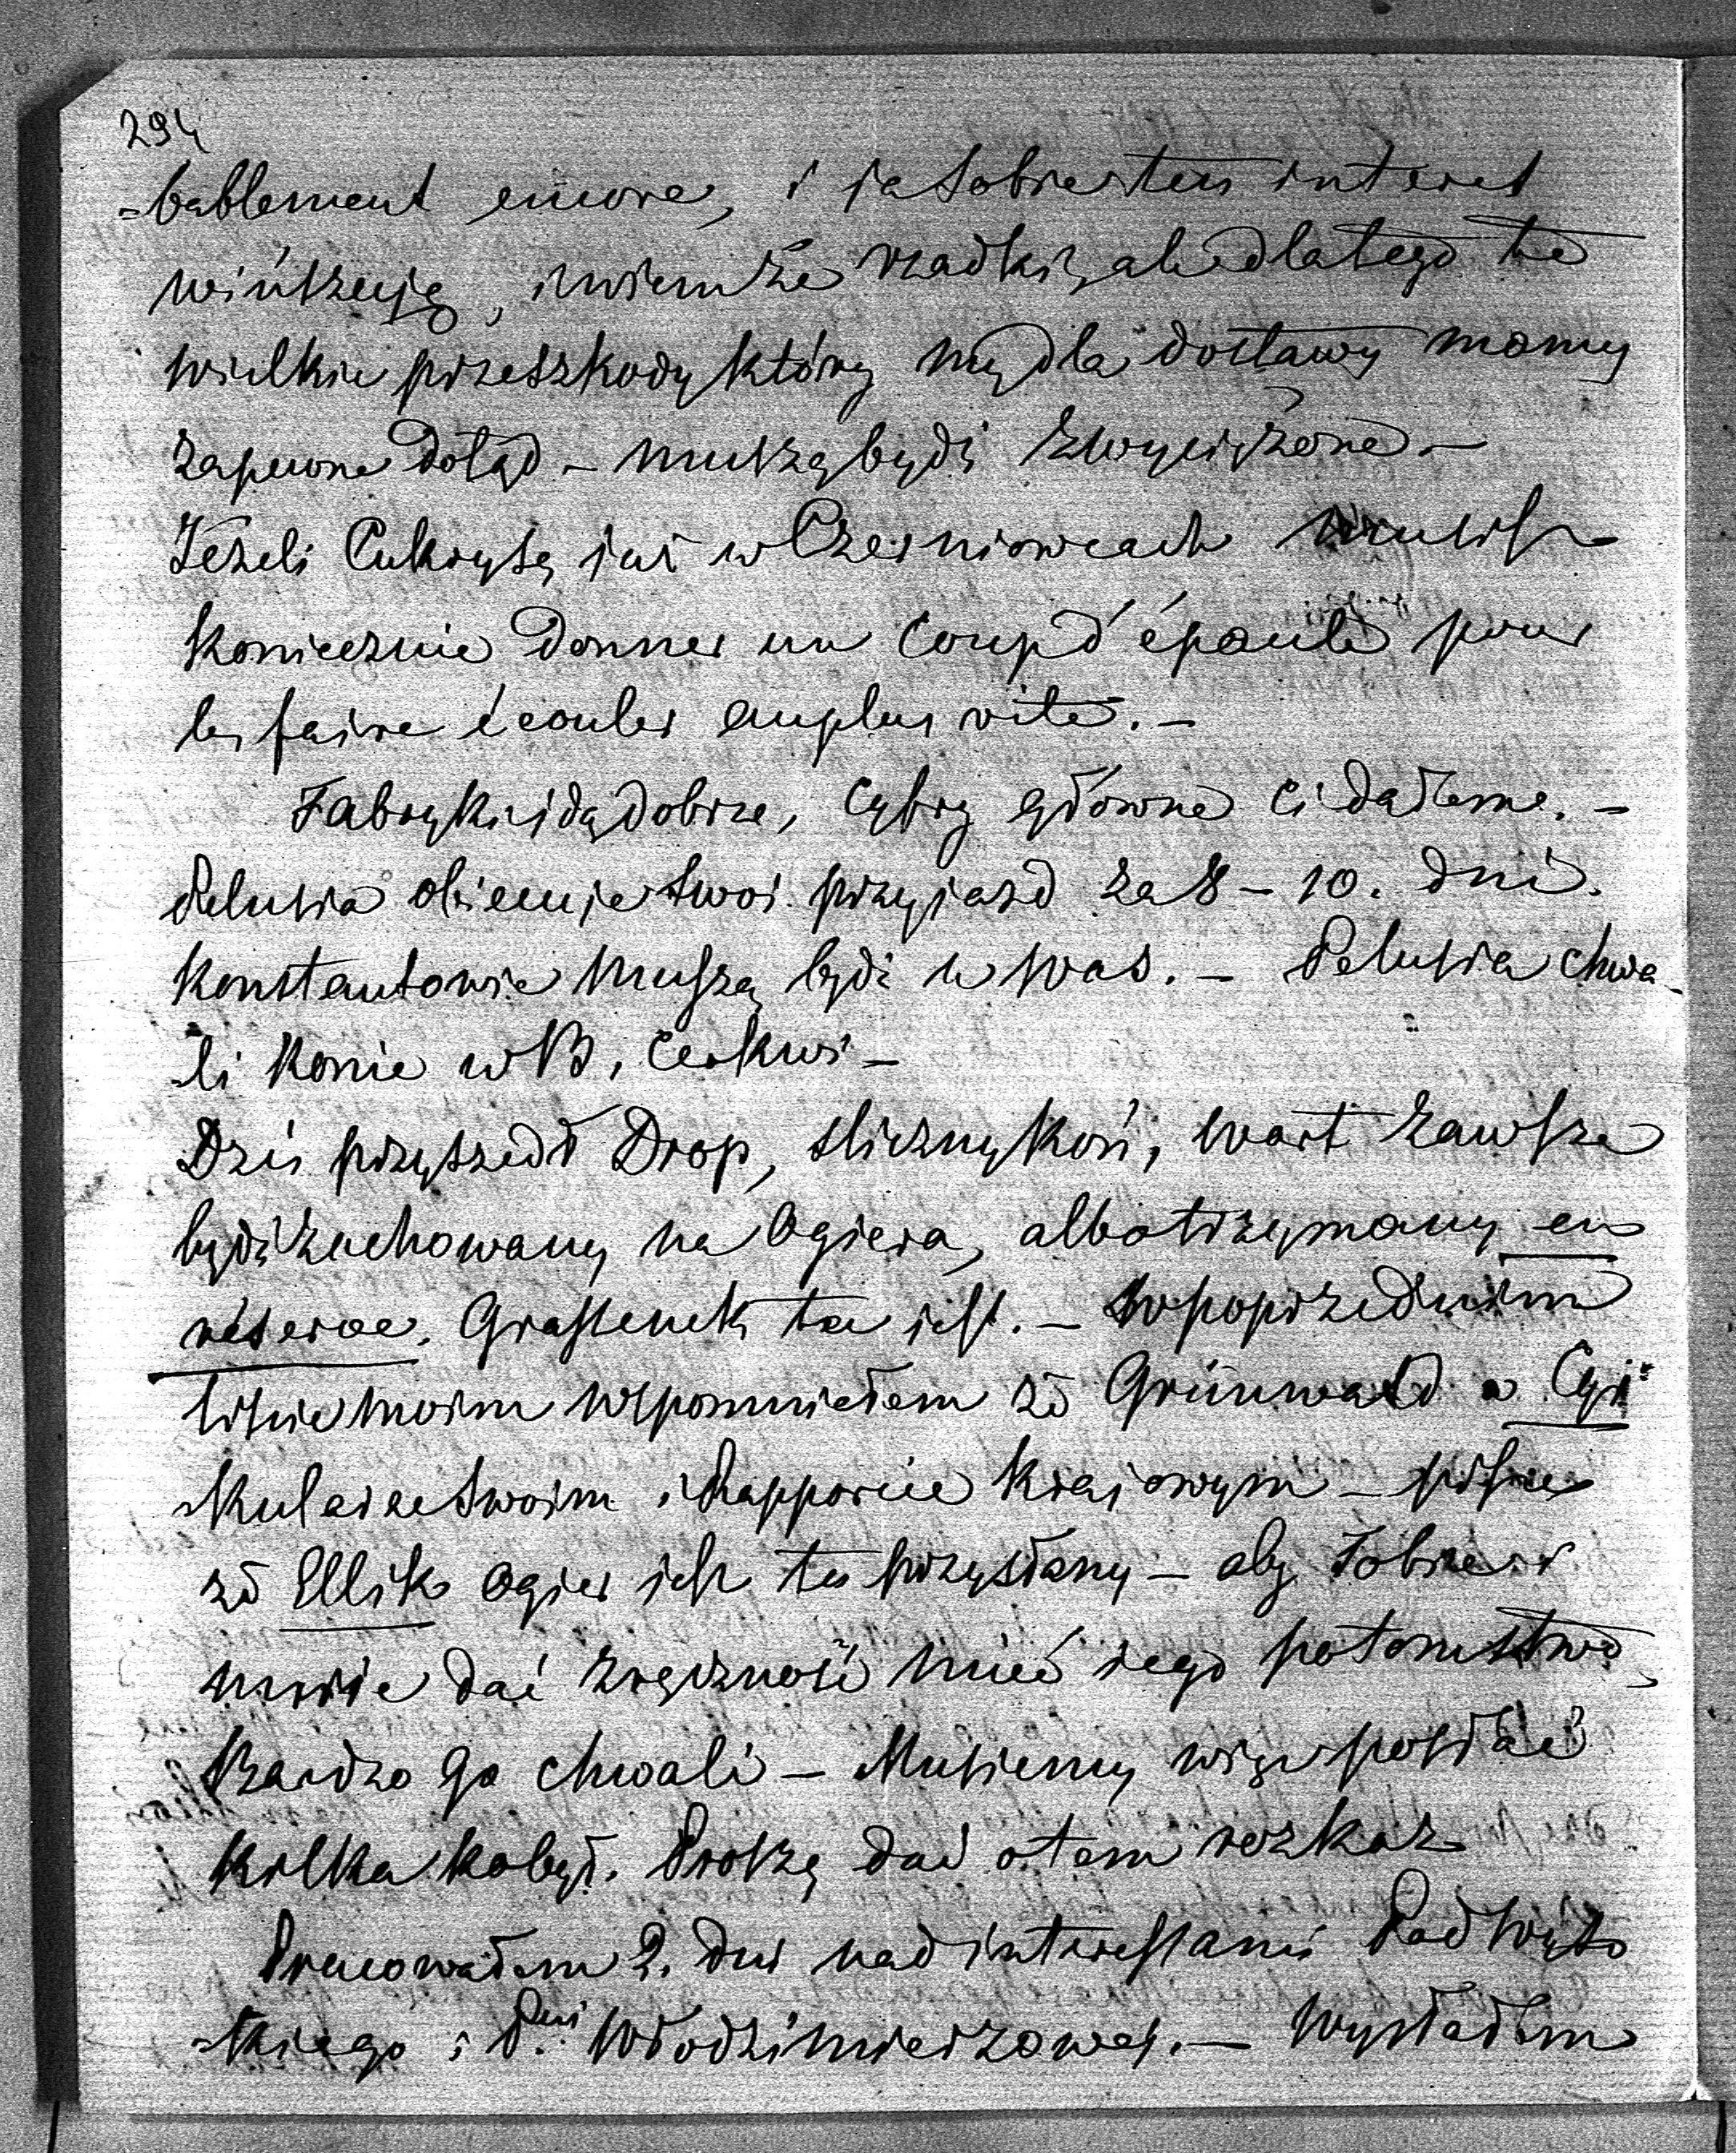 294
-bablement encore, i ja sobie ten interes
winszuję, i wiem że rzadki, ale dlatego te
wielkie przeszkody który my dla dostawy mamy
zapewne dotąd – muszą bydź zwyciężone –
Jeżeli Cukry są już w Czerniowcach musisz
koniecznie donner un coup d'épaule pour
les faire écouler au plus vite. –
Fabryki idą dobrze, Cyfry główne Ci dałeme. –
Pelusia obiecuje swoi przyjazd za 8 – 10. dni.
Konstantowie muszą bydź u was. – Pelusia chwa-
-li konie w B. Cerkwi –
Dziś przyszedł Drop, sliczny koń, wart zawsze
bydź zachowany na Ogiera, albo trzymany en
réserve. Grafienek tu jest. – W poprzednim
liście moim wspomniałem że Grünwald w Cyr-
-kularze swoim i Rapporcie krajowym – pisze
że Ellik Ogier jest tu przysłany – aby Tobie i
mnie dać zręczność mieć iego potomstwo,
Bardzo go chwali – Musiemy więc posłać
kilka kobył. Proszę dać o tem rozkaz
Pracowałem 2. dni nad interessami Podwyso
-tkiego i P.ni Włodzimierzowej. – Wysłałem